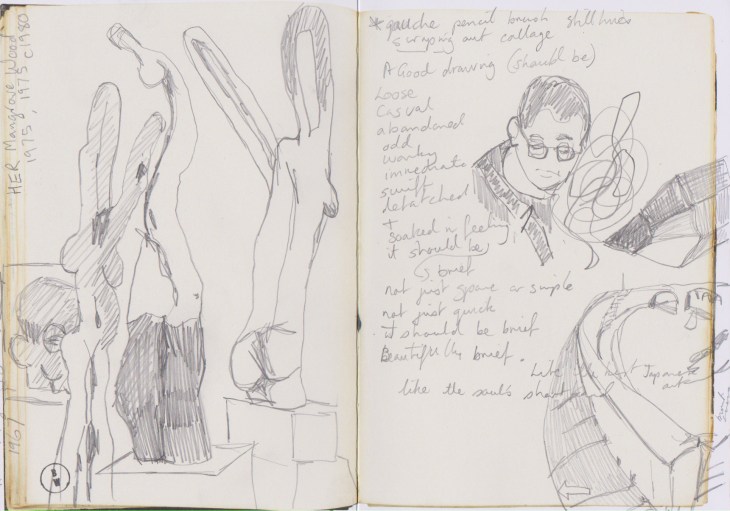 HER Mangrove Wood
1975, 1975 c1980
1967
* gauche pencil brush still lives
scraping out collage
A Good drawing (should be)
Loose
Casual
abandoned
odd
wonky
immediate
swift
detatched
+
soaked in feeling
it should be
brief
not just spare or simple
not just quick
it should be brief
Beautifully brief.
Like the most Japanese
art
like the soul's short hand